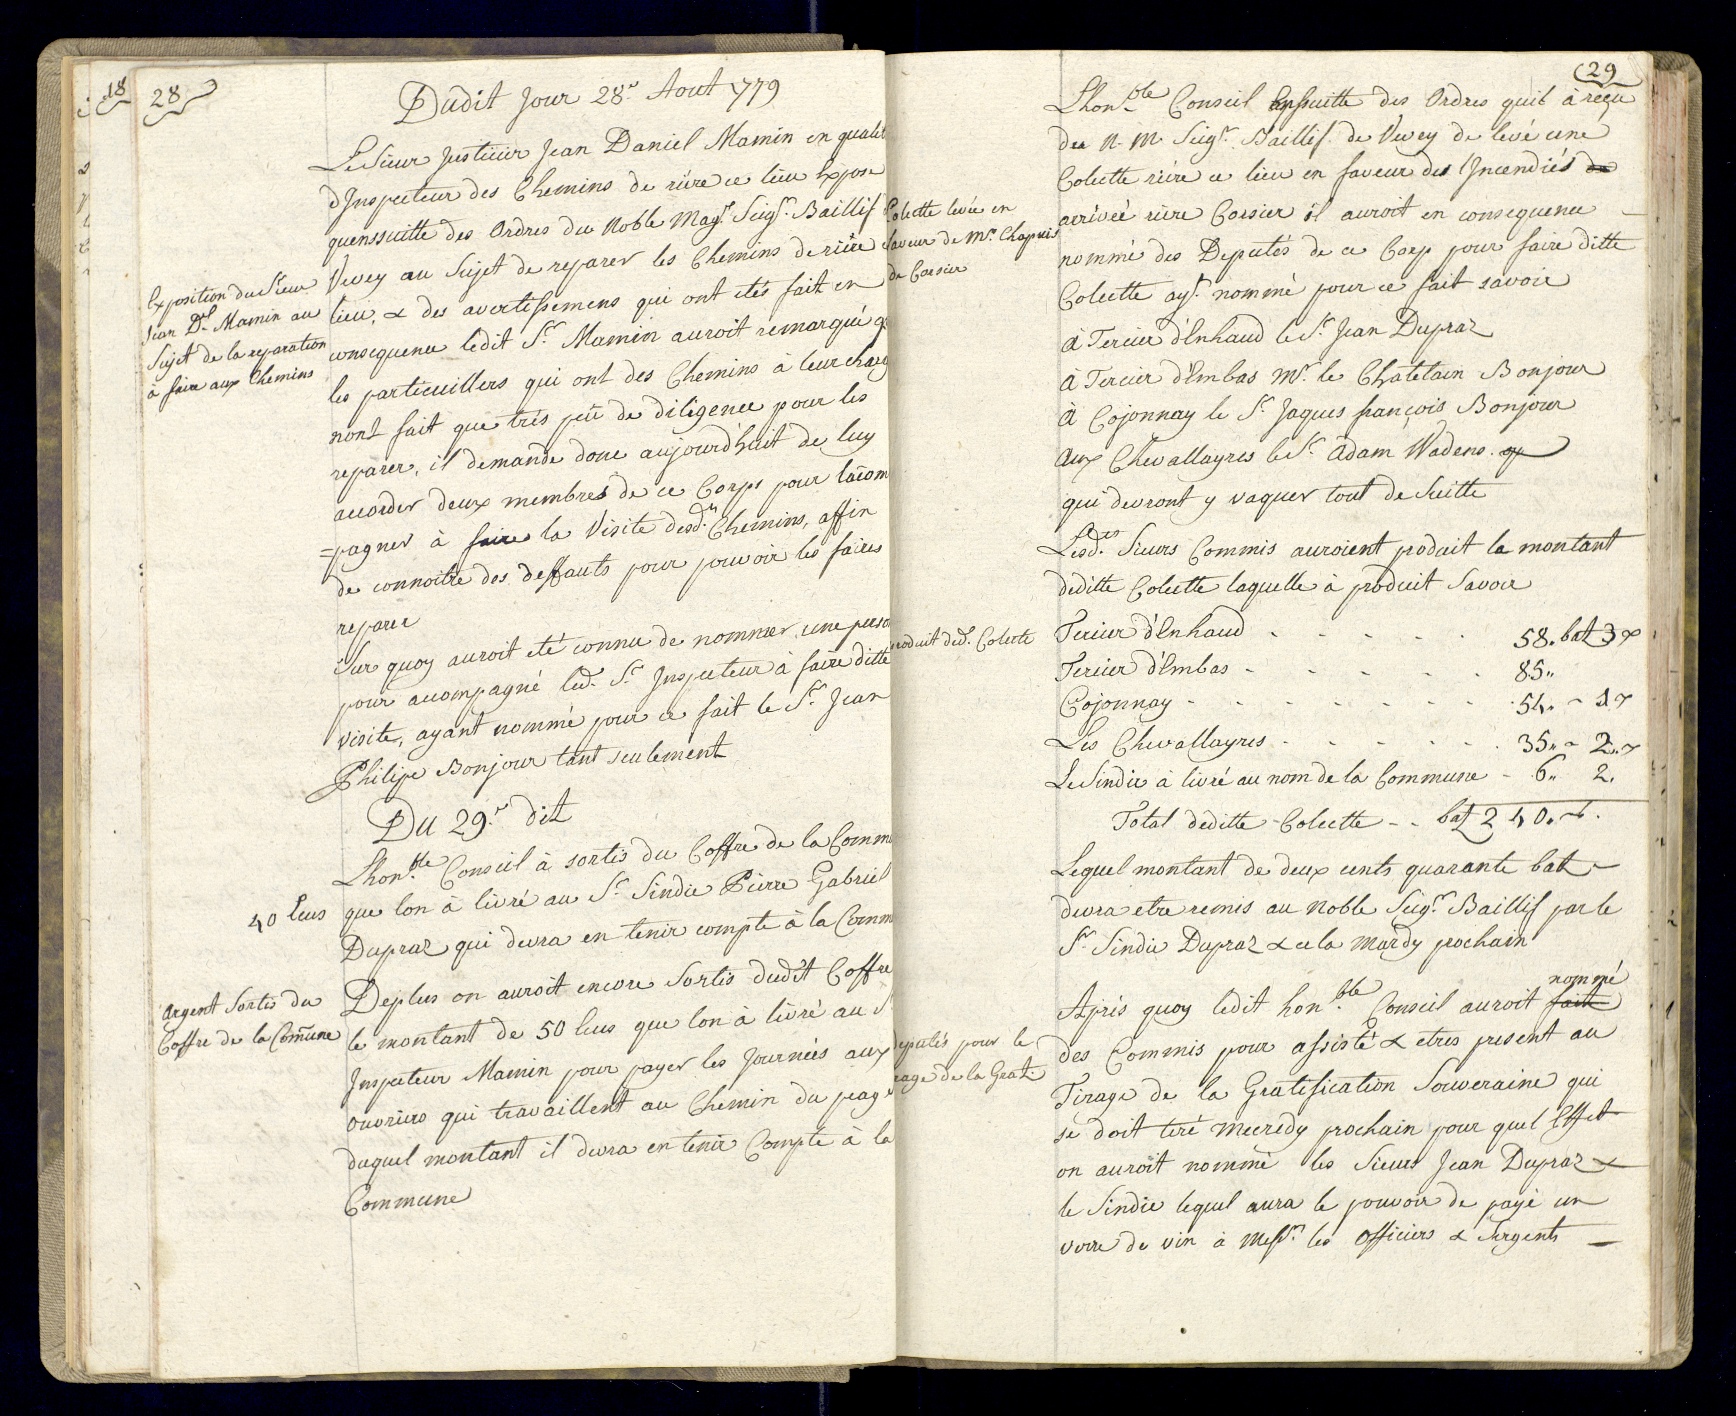 18
28
Dudit Jour 28.e Aout 1779
Le Sieur Justicier Jean Daniel Mamin en qualit
d'Inspecteur des Chemins de riére ce lieu Expose
quenssuitte des Ordres du Noble Mag.e Seig.r Baillif
Vevey au Sujet de reparer les Chemins de riére
lieu, & des avertissemens qui ont etés fait en
consequence ledit S.r Mamin auroit remarqué q
les particuillers qui ont des Chemins à leur charg
nont fait que trés peu de diligence pour les
reparer, il demande donc aujourd'huit de luy
accorder deux membres de ce Corps pour lacom
=pagner à faire la Visite desd.ts Chemins, affin
de connoitre des deffauts pour pouvoir les faires
reparer
Exposition du Sieur
Jean D.l Mamin au
Sujet de la reparation
à faire aux Chemins
Sur quoy auroit eté connu de nommer une perso
pour accompagné led. S.r Inspecteur à faire ditte
visite, ayant nommé pour ce fait le S.r Jean
Philipe Bonjour tant seulement
Du 29.e dit
Lhon.ble Conseil à sortis du Coffre de la Comm
40 Ecus
que lon à livré au S.r Sindic Pierre Gabriel
Dupraz qui devra en tenir compte à la Comm
Deplus on auroit encore Sortis dudit Coffre
le montant de 50 Ecus que lon à livré au S
Inspecteur Mamin pour payer les Journées aux
ouvriers qui travaillent au Chemin du peage
duquel montant il devra en tenir Compte à la
Commune
Argent Sortis du
Coffre de la Comune
29
Lhon.ble Conseil Ensuitte des Ordres quil à reçu
du N. M. Seig.r Baillif de Vevey de levé une
Colecte riére ce lieu en faveur des Incendiés de
arrivéé riére Corsier il auroit en consequence
nommé des Deputés de ce Corp pour faire ditte
Colecte ay.t nommé pour ce fait savoir
Colecte levée en
faveur de M.r Chapuis
de Corsier
à Tercier d'Enhaud le S.r Jean Dupraz
à Tercier d'Embas M.r le Chatelain Bonjour
à Cojonnay le S.r Jaques françois Bonjour
aux Chevallayres le S.r Adam Wadens
qui devront y vaquer tout de Suitte
Lesd.ts Sieurs Commis auroient produit le montant
deditte Colecte laquelle à produit Savoir
roduit ded. Colecte
Tercier d'Enhaud - - - - - 58. batz 3
Tercier d'Embas - - - - - 85.
Cojonnay - - - - - - - 54. - 1
Les Chevallayres - - - - - 35. - 2.
Le Sindic à livré au nom de la Commune - 6. 2.
Total deditte Colecte - - batz 240.
Lequel montant de deux cents quarante batz
devra etre remis au Noble Seig.r Baillif par le
S.r Sindic Dupraz & ce la mardy prochain
nommé
Aprés quoy ledit hon.ble Conseil auroit fait
des Commis pour assisté & etres present au
Tirage de la Gratification Souveraine qui
se doit tiré mecredy prochain pour quel Effet
on auroit nommé les Sieurs Jean Dupraz &
le Sindic lequel aura le pouvoir de payé un
verre de vin à Mess.rs les Officiers & Sergents
deputés pour le
rage de la Grat.